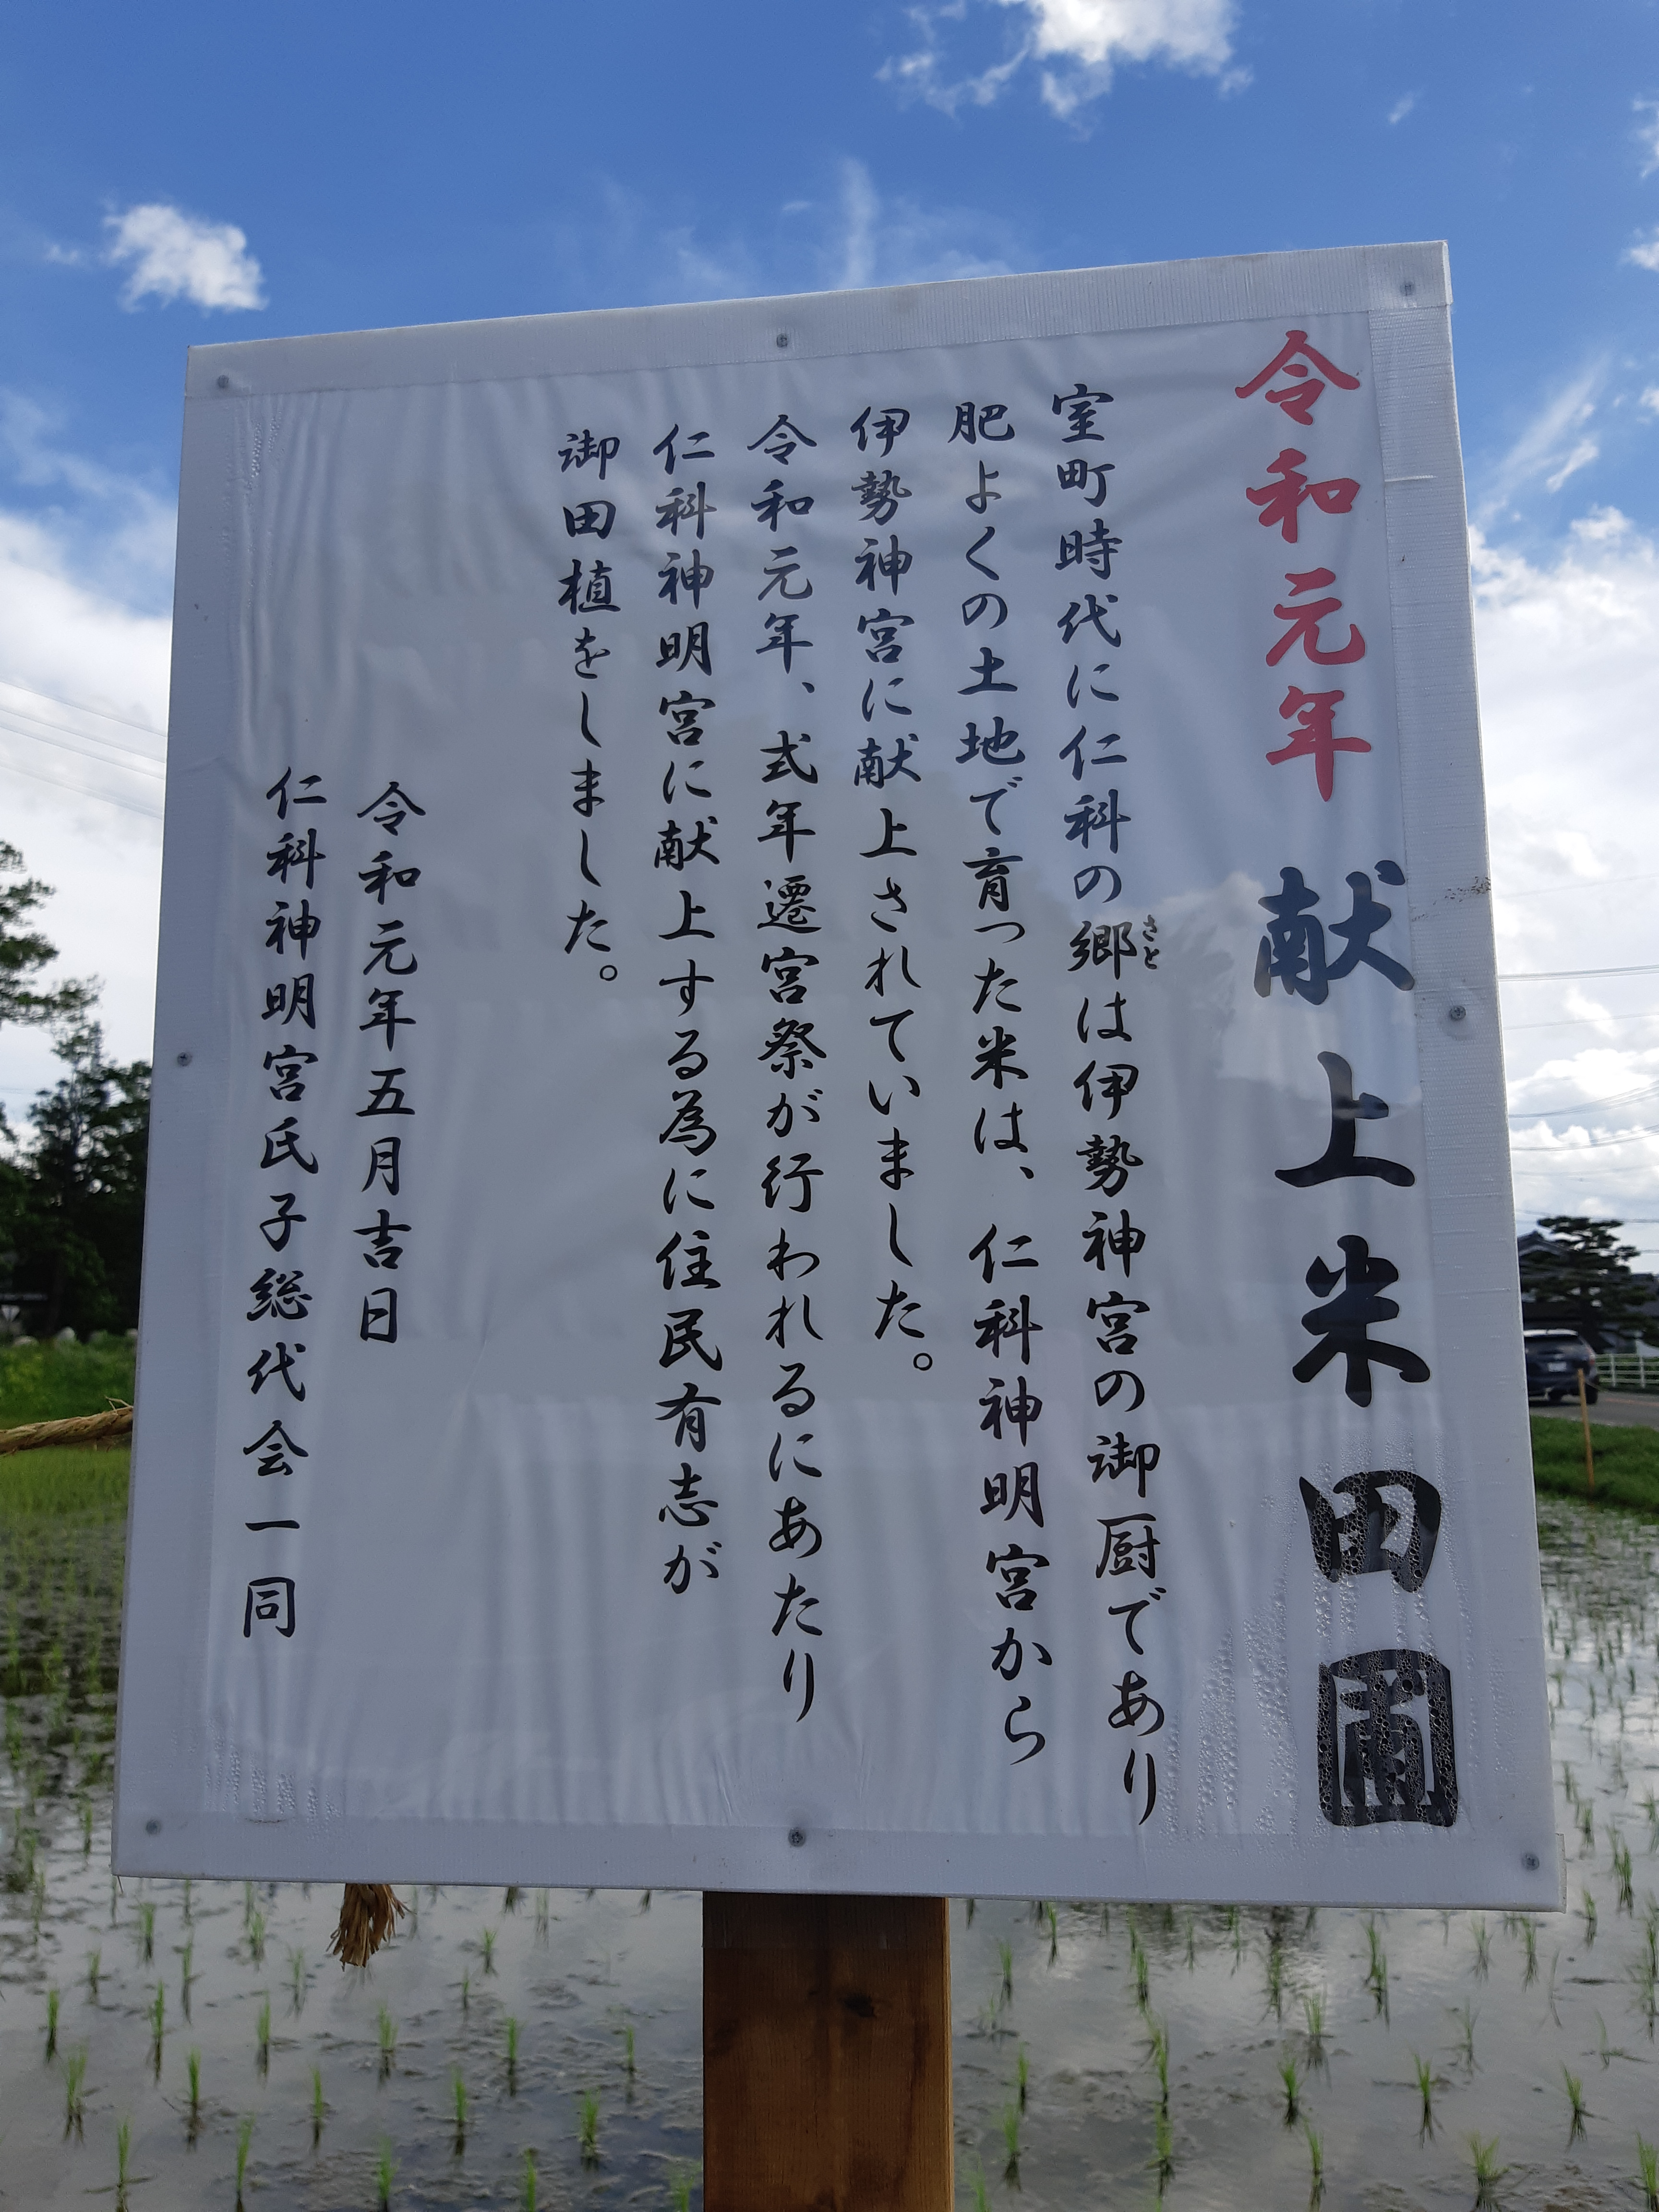 令和元年 献上米田圃
室町時代に仁科の郷は伊勢神宮の御厨であり
さと
肥よくの土地で育った米は、仁科神明宮から
伊勢神宮に献上されていました。
令和元年、式年遷宮祭が行われるにあたり
仁科神明宮に献上する為に住民有志が
御田植をしました。
令和元年五月吉日
仁科神明宮氏子総代会一同